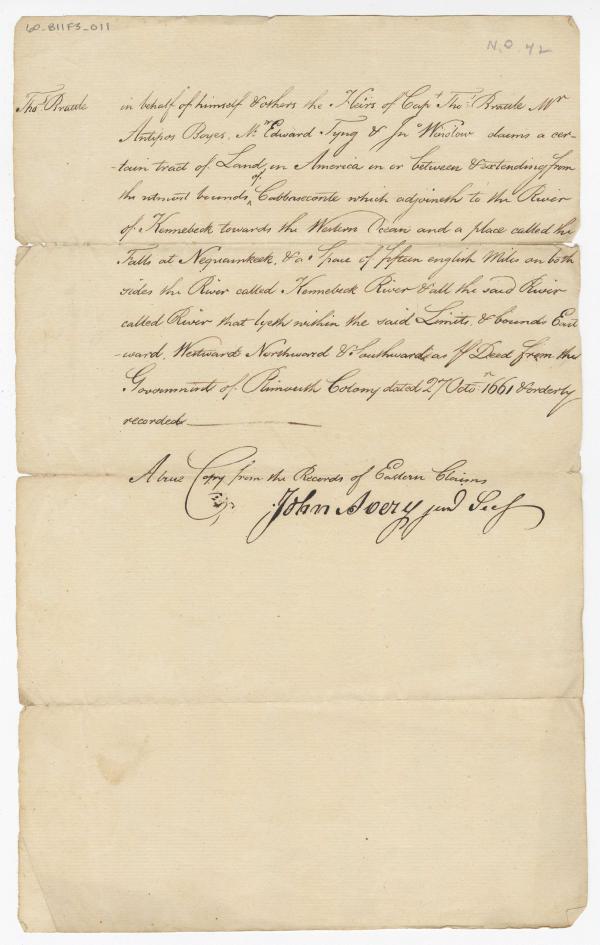 60-B11F3-011
N.O. 42
Thos Brattle in behalf of himself & others the Heirs of Capt Thos Brattle Mr
Antipos Boyes, Mr Edward Tyng & Jno Winslow claims a cer-
-tain tract of Land, in America in or between & extending from
the utmost bounds of Cobbaseconte which adjoineth to the River
of Kennebeck towards the Western Ocean and a place called the
Falls at Neguamkeek, & a Space of fifteen english Miles on both
sides the River called Kennebeck River & all the said River
called River that lyeth within the said Limits & bounds East
-ward, Westward Northward & Southward as pr Deed from the
Government of Plimouth Colony dated 27 Octor 1661 & orderly
recorded
A true Copy from the Records of Eastern Claims
John Avery junr Secy